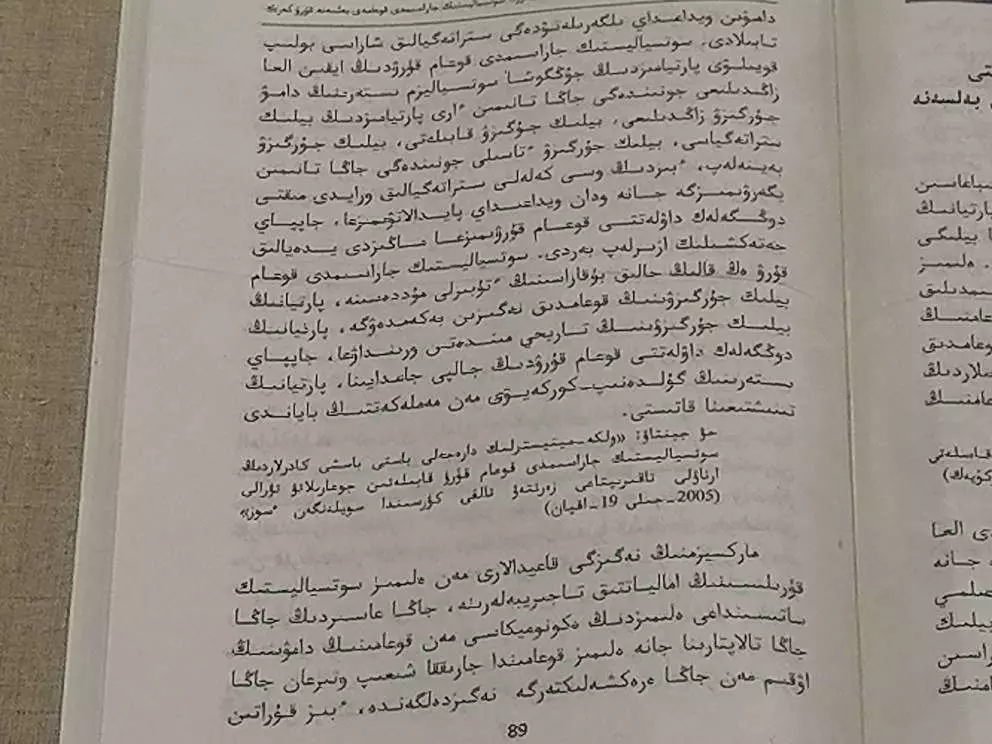 دامۋىن ويداعىداي ىلگەرىلەتۋدەگى ستراتەگيالىق شاراسى بولىپ
تابىلادى. سوتسياليستىك جاراسىمدى قوعام قۇرۋدىڭ ايقىن العا
قويىلۋى پارتيامىزدىڭ جۇڭگوشا سوتسياليزم ىستەرىنىڭ دامۋ
زاڭدىلىعى جونىندەگى جاڭا تانىمىن ءارى پارتيامىزدىڭ بيلىك
جۇرگىزۋ زاڭدىلىعى، بيلىك جۇرگىزۋ قابىلەتى، بيلىك جۇرگىزۋ
ستراتەگياسى، بيلىك جۇرگىزۋ ءتاسىلى جونىندەگى جاڭا تانىمىن
بەينەلەپ، ءبىزدىڭ وسى كەلەلى ستراتەگيالىق ورايدى مىقتى
يگەرۋىمىزگە جانە ودان ويداعىداي پايدالانۋىمىزعا، جاپپاي
دوڭگەلەك داۋلەتتى قوعام قۇرۋىمىزعا ماڭىزدى يدەيالىق
جەتەكشىلىك ازىرلەپ بەردى. سوتسياليستىك جاراسىمدى قوعام
قۇرۋ ەڭ قالىڭ حالىق بۇقاراسىنىڭ ءتۇبىرلى مۇددەسىنە، پارتيانىڭ
بيلىك جۇرگىزۋىنىڭ قوعامدىق نەگىزىن بەكەمدەۋگە، پارتيانىڭ
بيلىك جۇرگىزۋىنىڭ تاريحي مىندەتىن ورىنداۋعا، جاپپاي
دوڭگەلەك داۋلەتتى قوعام قۇرۋدىڭ جالپى جاعدايىنا، پارتيانىڭ
ىستەرىنىڭ گۇلدەنىپ-كوركەيۋى مەن مەملەكەتتىڭ باياندى
تىنىشتىعىنا قاتىستى.
حۋ جينتاۋ: «ولكە-مينيسترلىك دارەجەلى باستى باسشى كادرلاردىڭ
سوتسياليستىك جاراسىمدى قوعام قۇرۋ قابىلەتىن جوعارىلاتۋ تۋرالى
ارناۋلى تاقىرىپتاعى زەرتتەۋ تالقى كۋرسىندا سويلەنگەن ءسوز»
(2005-جىلى 19-اقپان)
ماركسيزمنىڭ نەگىزگى قاعيدالارى مەن ەلىمىز سوتسياليستىك
قۇرىلىسىنىڭ امالياتتىق تاجىريبەلەرىنە، جاڭا عاسىردىڭ جاڭا
ساتىسىنداعى ەلىمىزدىڭ ەكونوميكاسى مەن قوعامىنىڭ دامۋىنىڭ
جاڭا تالاپتارىنا جانە ەلىمىز قوعامىندا جارىققا شىعىپ وتىرعان جاڭا
اۋقىم مەن جاڭا ەرەكشەلىكتەرگە نەگىزدەلگەندە، ءبىز قۇراتىن
89